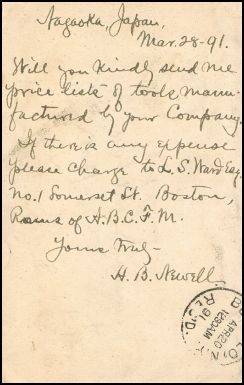 Nagaoka, Japan,
Mar. 28-91.
Will you kindly send me
price lists of tools manu-
factured by your Company.
If there is any expense
please charge to L. S. Ward Esq.
No. 1 Somerset St. Boston,
Rooms of A.B.C.F.M.
Yours truly-
H. B. Newell.
APR 20
1230AM
91
REC'D.